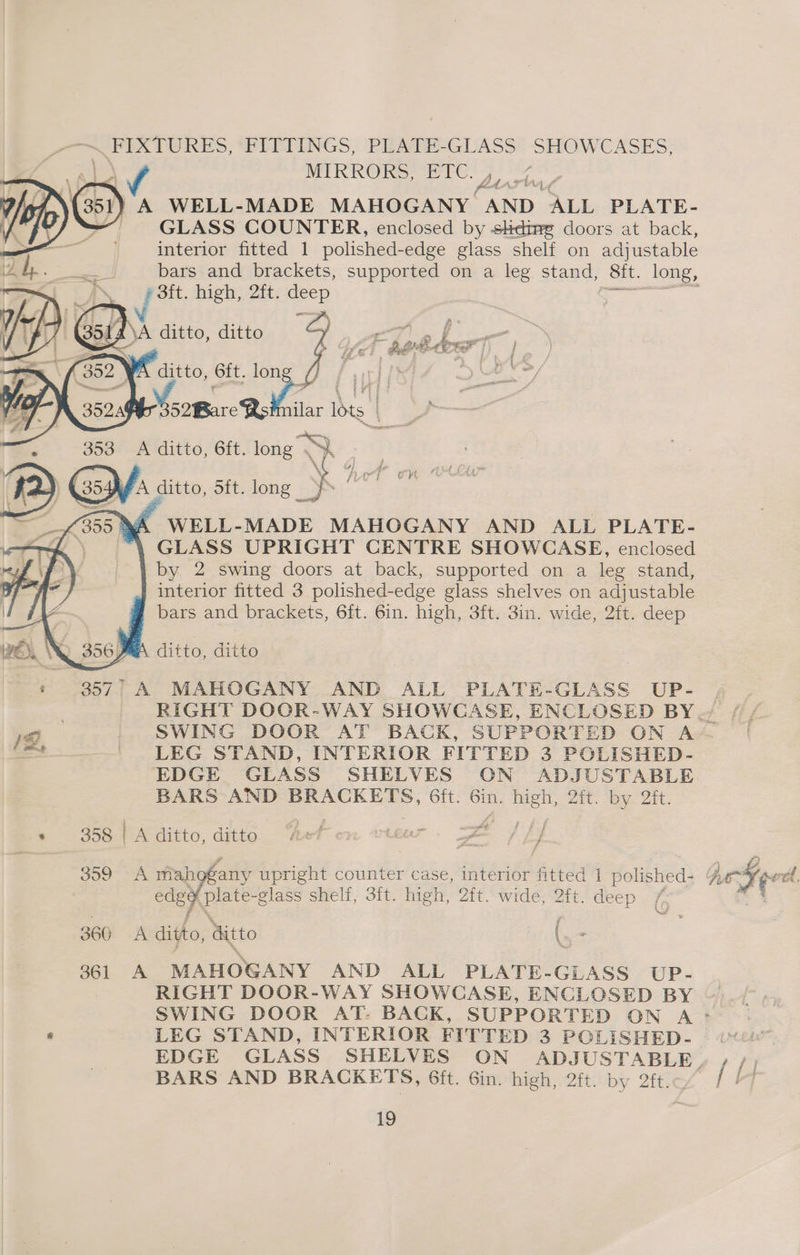 FIXTURES, FITTINGS, PLATE-GLASS SHOWCASES,
MIRRORS, ETC.
351 A WELL-MADE MAHOGANY AND ALL PLATE-
GLASS COUNTER, enclosed by sliding doors at back,
interior fitted 1 polished-edge glass shelf on adjustable
bars and brackets, supported on a leg stand, 8ft. long,
3ft. high, 2ft. deep
351A A ditto, ditto
352 A ditto, 6ft. long
352A 352B are similar lots
353 A ditto, 6ft. long
354 A ditto, 5ft. long
not on view
355 A WELL-MADE MAHOGANY AND ALL PLATE-
GLASS UPRIGHT CENTRE SHOWCASE, enclosed
by 2 swing doors at back, supported on a leg stand,
interior fitted 3 polished-edge glass shelves on adjustable
bars and brackets, 6ft. 6in. high, 3ft. 3in. wide, 2ft. deep
356 A ditto, ditto
357 A MAHOGANY AND ALL PLATE-GLASS UP-
RIGHT DOOR-WAY SHOWCASE, ENCLOSED BY
SWING DOOR AT BACK, SUPPORTED ON A
LEG STAND, INTERIOR FITTED 3 POLISHED-
EDGE GLASS SHELVES ON ADJUSTABLE
BARS AND BRACKETS, 6ft. 6in. high, 2ft. by 2ft.
358 A ditto, ditto not on view
359 A mahogany upright counter case, interior fitted 1 polished-
edge plate-glass shelf, 3ft. high, 2ft. wide, 2ft. deep
360 A ditto, ditto
361 A MAHOGANY AND ALL PLATE-GLASS UP-
RIGHT DOOR-WAY SHOWCASE, ENCLOSED BY
SWING DOOR AT BACK, SUPPORTED ON A
LEG STAND, INTERIOR FITTED 3 POLISHED-
EDGE GLASS SHELVES ON ADJUSTABLE
BARS AND BRACKETS, 6ft. 6in. high, 2ft. by 2ft.
19